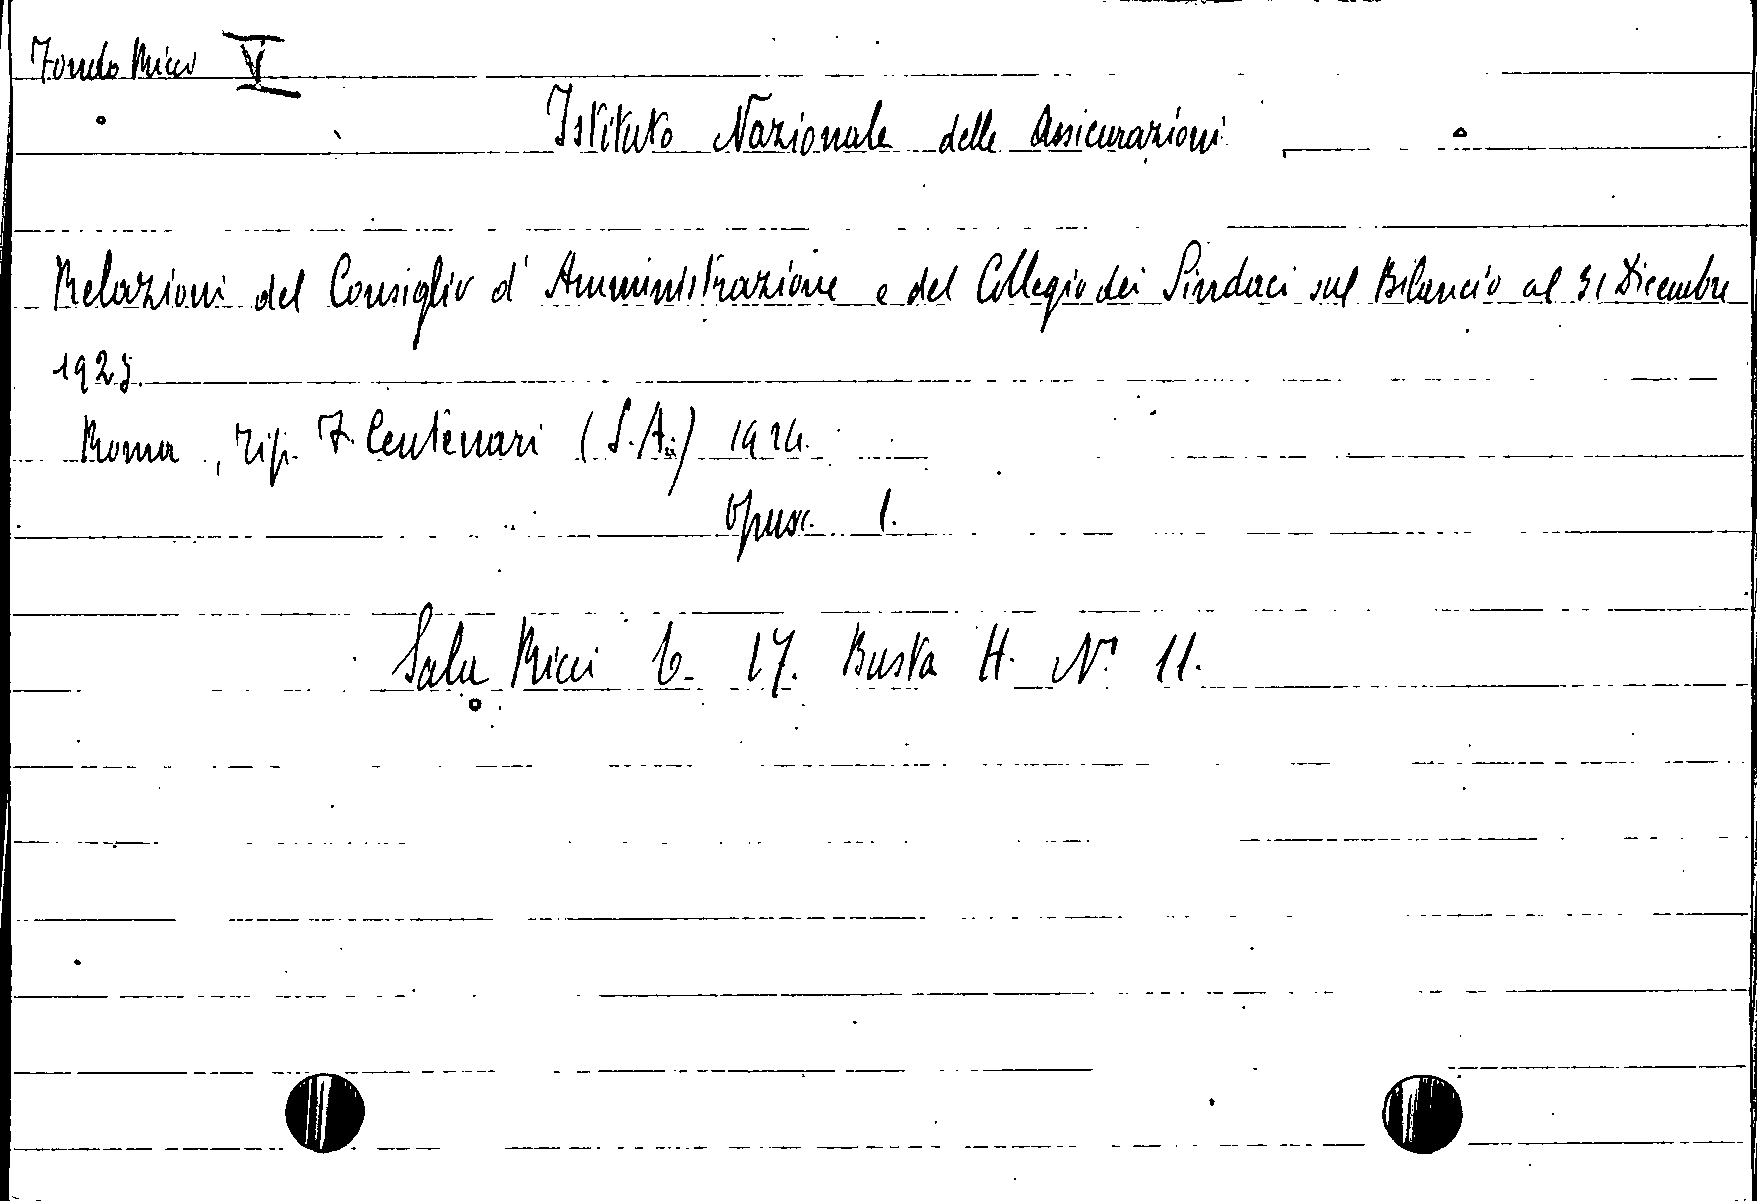 Fondo Ricci V
Istituto Nazionale delle Assicurazioni
Relazioni del Consiglio d'Amministrazione e del Collegio dei Sindaci sul Bilancio al 31 Dicembre
1923.
Roma, Tip. F. Centenari (S. A.) 1924.
Opusc. 1.
Sala Ricci 6. 17. Busta H. N° 11.